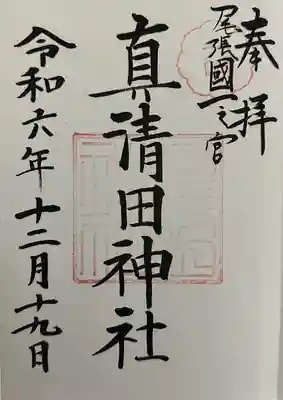 奉拝
尾張國一之宮
真清田神社
令和六年十二月十九日